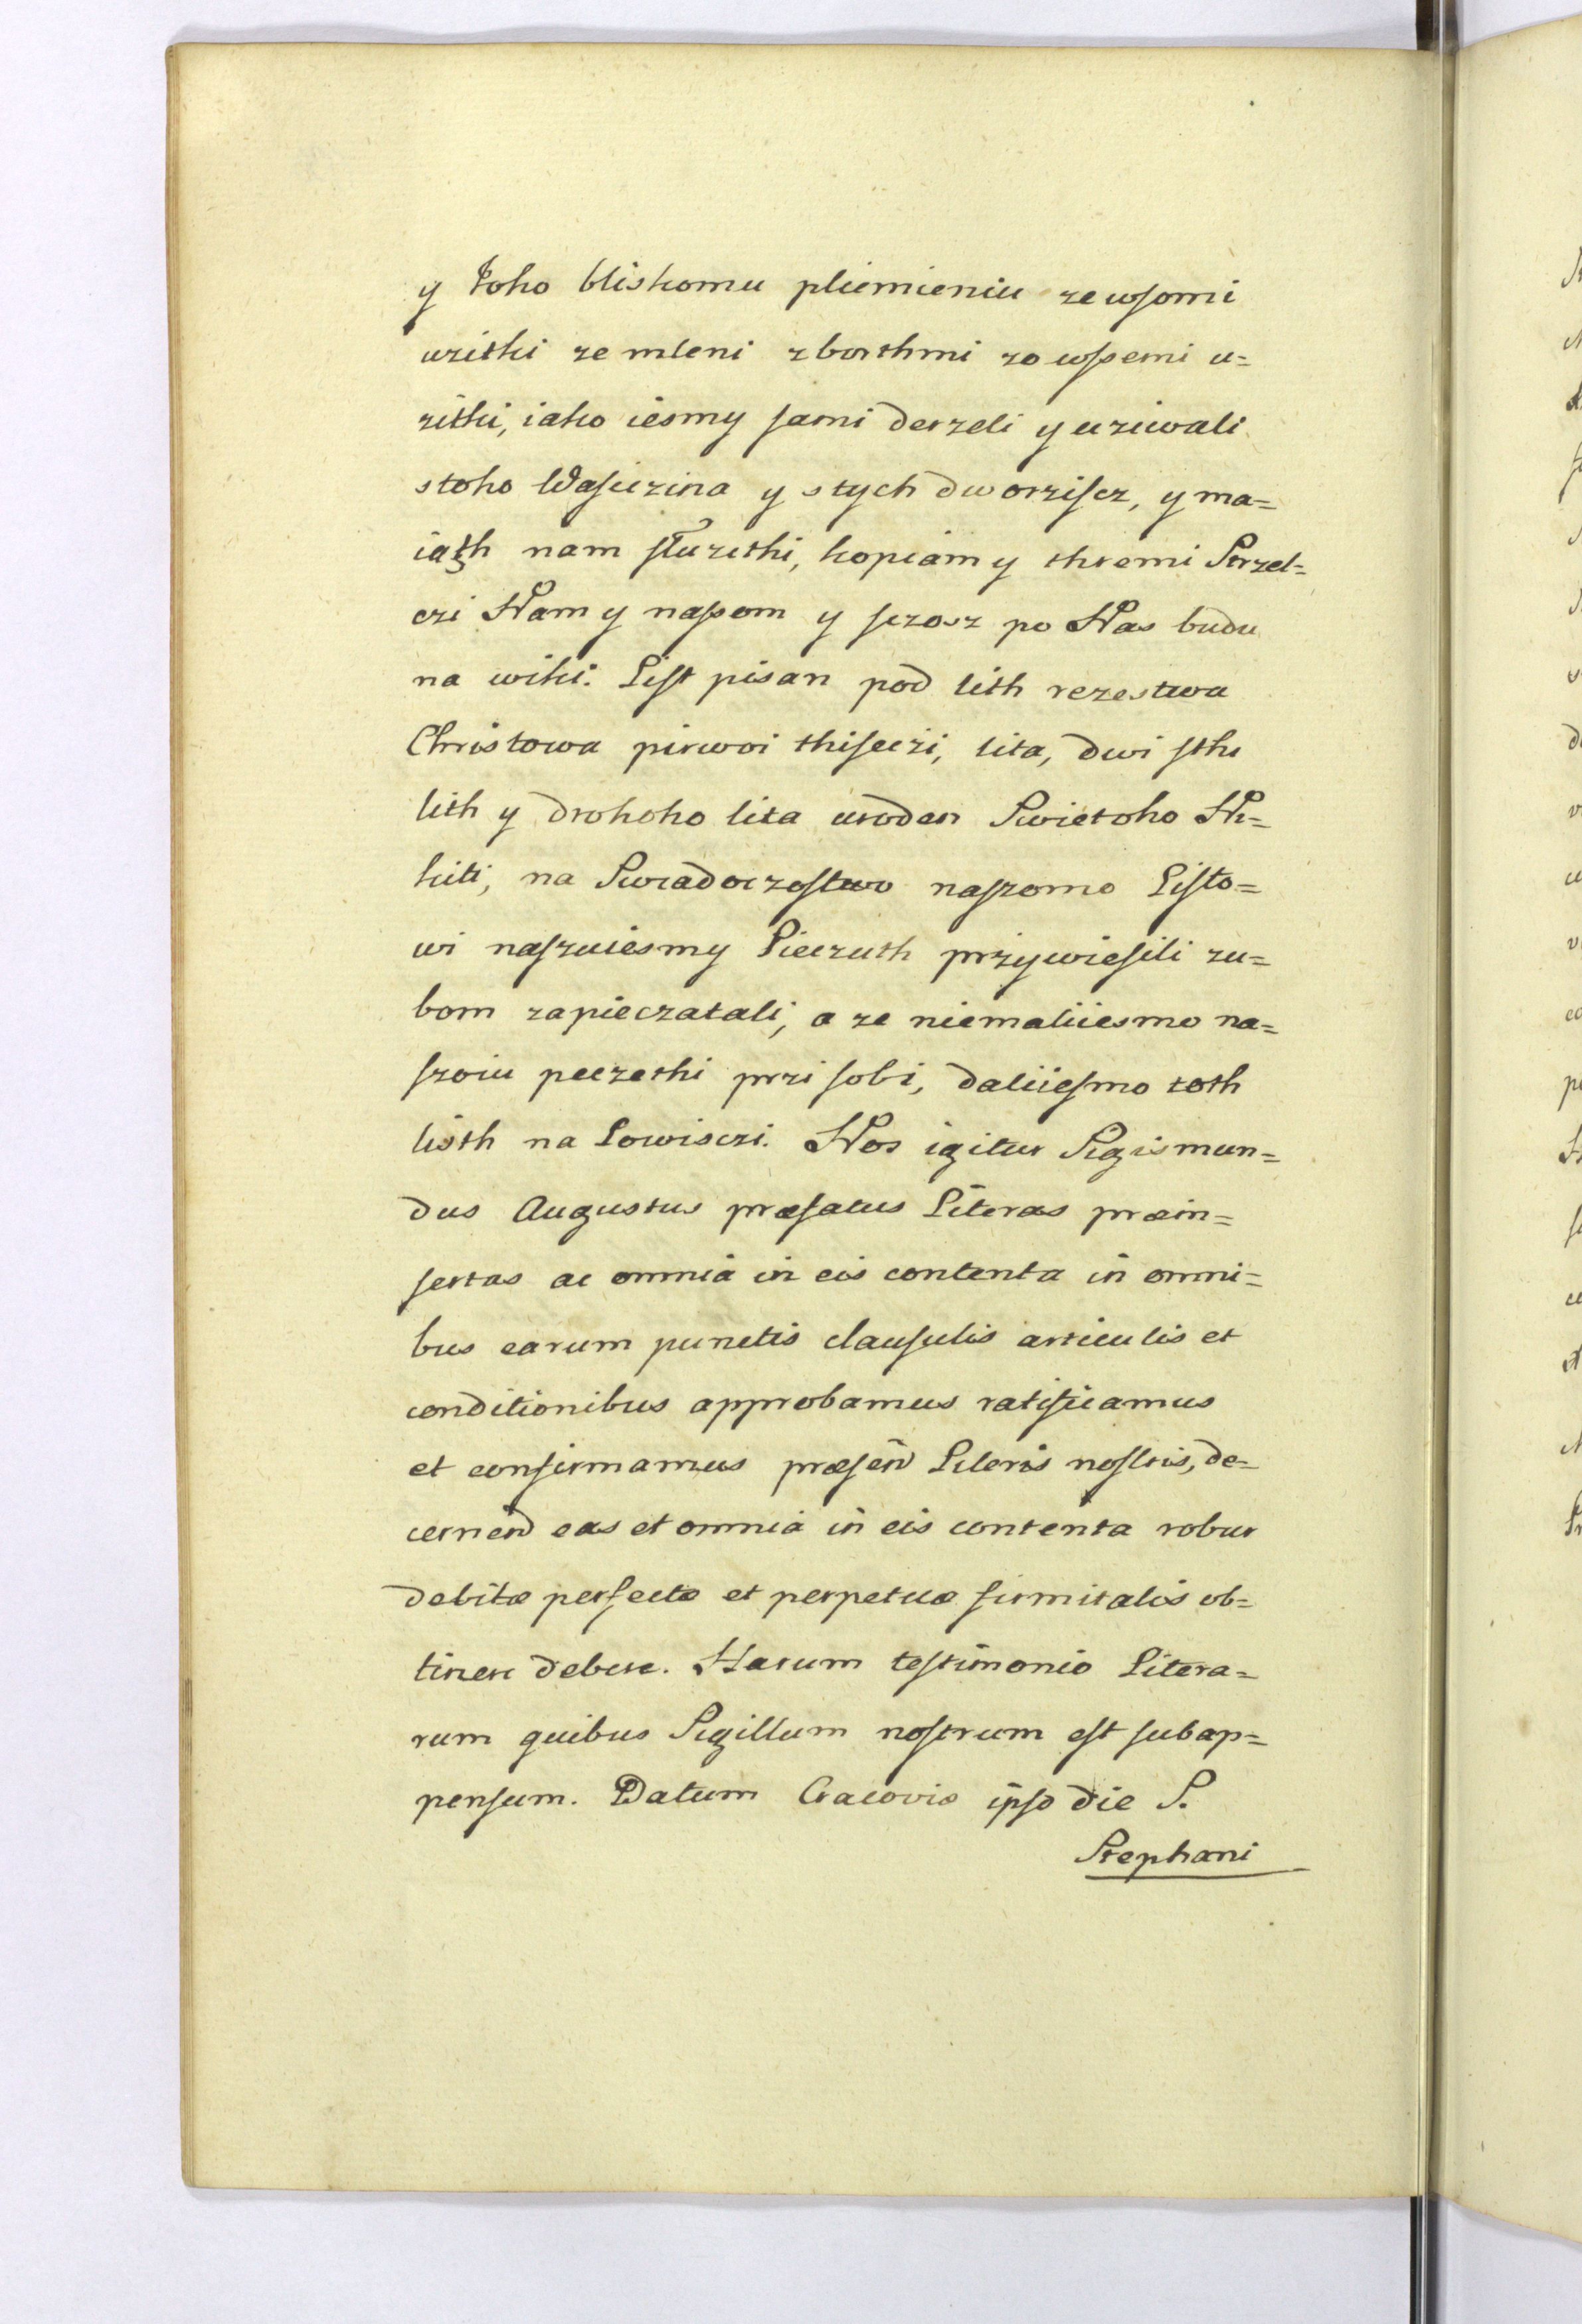 y Joho bliskomu pliemieniu ze wsomi
uzitki ze mleni zborthmi zo wssemi u=
zithi, iako iesmy sami derzeli y uziwali
stoho Wasiczina y stych dworziscz, y ma=
iath nam słuzithi, kopiam y thremi Strzel=
czi Nam y nassom y sczosz po Nas budu
na wiki. List pisan pod lith rezestwa
Christowa pirwoi thiseczi, lita, dwi sthi
lith y drohoho lita wroden Swietoho Ni=
kiti, na Swiadoczostwo naszomo Listo=
wi naszuiesmy Pieczuth przywiesili zu=
bom zapieczatali, a ze niemaliiesmo na=
szoiu peczethi przi sobi, daliiesmo toth
listh na Lowisczi. Nos igitur Sigismun=
dus Augustus præfatus Literas præin=
sertas ac omnia in eis contenta in omni=
bus earum punctis clausulis articulis et
conditionibus approbamus ratificamus
et confirmamus præsen̄ Literis nostris, de=
cernen̄ eas et omnia in eis contenta robur
debitæ perfectæ et perpetuæ firmitatis ob=
tinere debere. Harum testimonio Litera=
rum quibus Sigillum nostrum est subap=
pensum. Datum Cracoviæ ipso die S.
Stephani